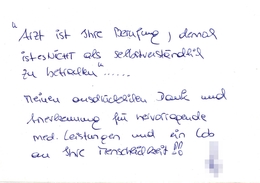 "Arzt ist Ihre Berufung, damal
ist es NICHT als selbstverständlich
zu betrachten"......
Meinen ausdrücklichen Dank und
Anerkennung für hervorragende
med. Leistungen und ein Lob
an Ihre Menschlichkeit!!